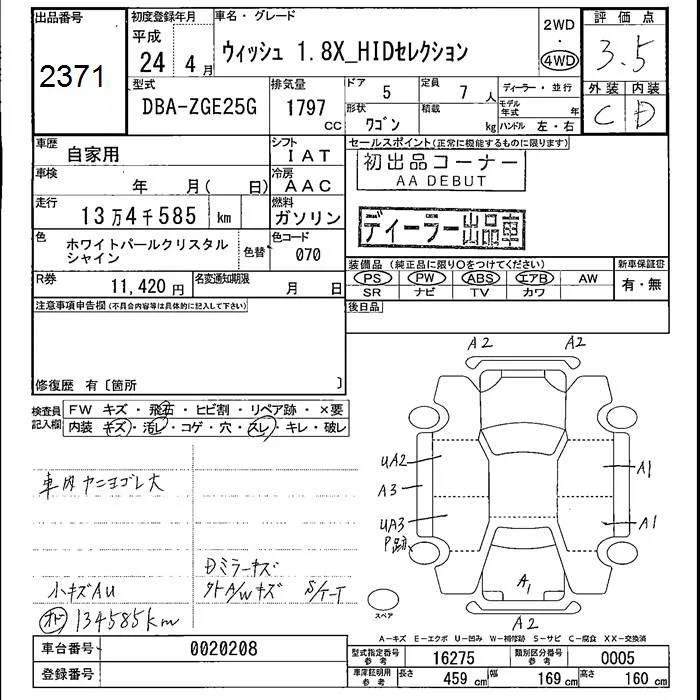 出品番号
2371
初度登録年月
平成
24 4月
車名・グレード
ウィッシュ 1.8X_HIDセレクション
2WD
・
4WD
評価点
3.5
外装 内装
C D
型式
DBA-ZGE25G
排気量
1797
cc
ドア
5
定員
7 人
形状
ワゴン
積載
kg
ディーラー・並行
モデル年式 年
ハンドル 左・右
車歴
自家用
シフト
IAT
車検
年 月( 日)
冷房
AAC
走行
13万4千585 km
燃料
ガソリン
色
ホワイトパールクリスタル
シャイン
色替
色コード
070
R券
11,420 円
名変通知期限
月 日
セールスポイント(正常に機能するものに限ります)
初出品コーナー
AA DEBUT
ディーラー出品車
装備品(純正品に限り○をつけてください)
PS PW ABS エアB AW
SR ナビ TV カワ
新車保証書
有・無
後日品
注意事項申告欄(不具合内容等は具体的に記入して下さい)
修復歴 有〔箇所 〕
検査員
記入欄
FW キズ・飛石・ヒビ割・リペア跡・×要
内装 キズ・汚レ・コゲ・穴・スレ・キレ・破レ
車内ヤニヨゴレ大
Dミラーキズ
小キズAU
外A/Wキズ S/T-T
134585km
A2 A2
UA2
A3
UA3
P跡
A1
A1
A1
A2
スペア
A-キズ E-エクボ U-凹み W-補修跡 S-サビ C-腐食 XX-交換済
車台番号
0020208
登録番号
型式指定番号
参考
16275
類別区分番号
参考
0005
車庫証明用
参考
長さ 459 cm 幅 169 cm 高さ 160 cm